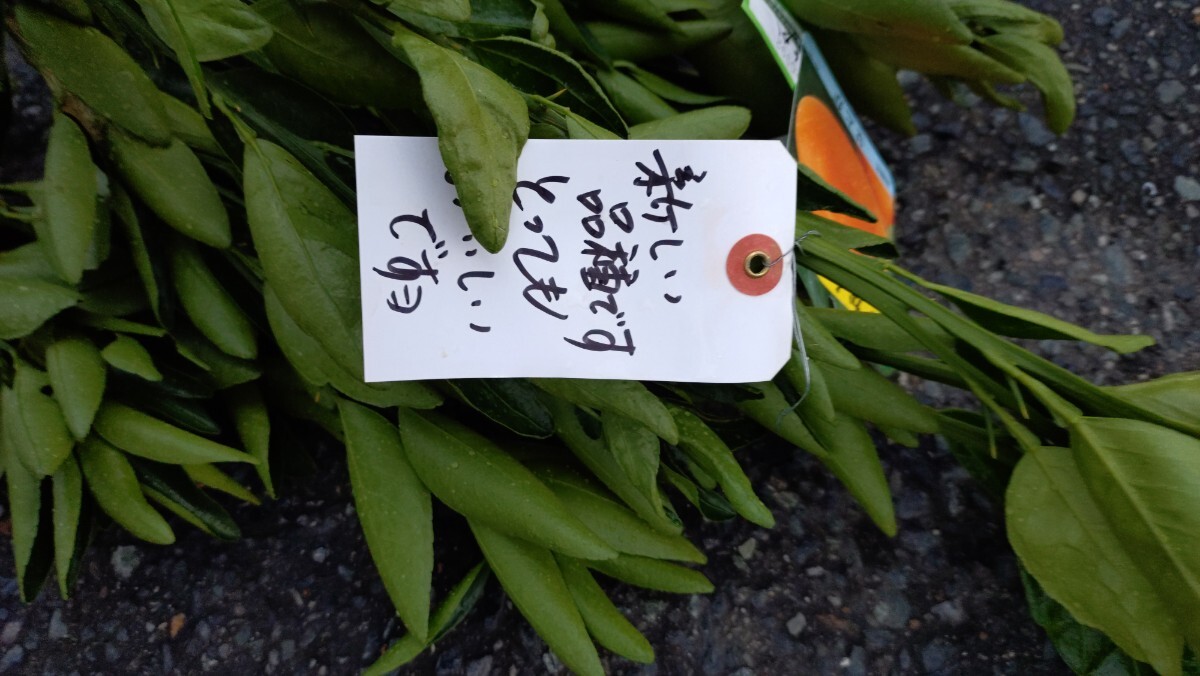 新しい
品種です
とっても
いしい
ですヨ